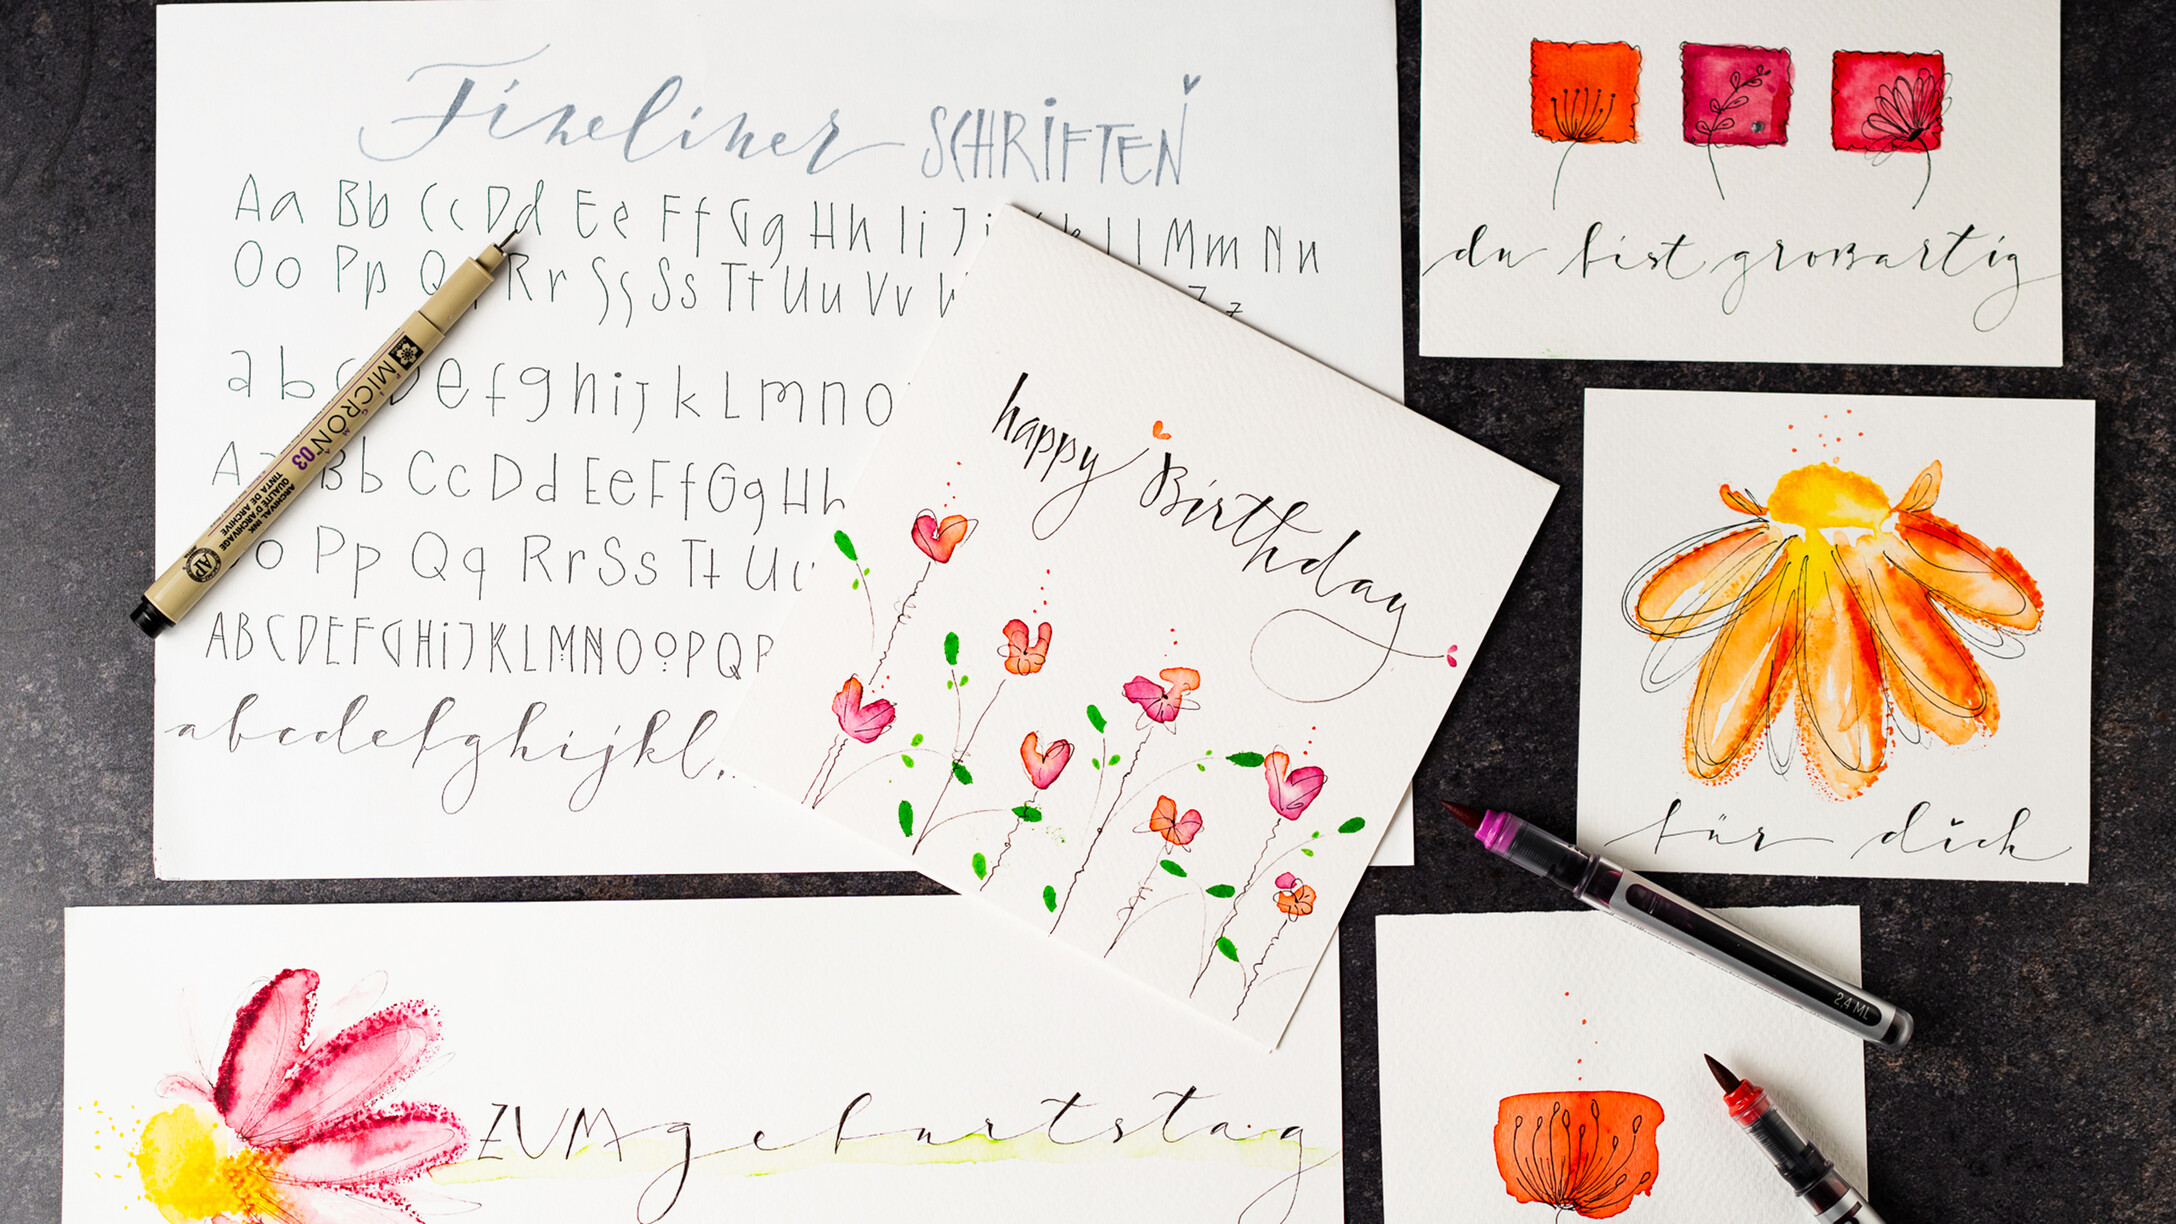 Fineliner SCHRiFTEN
Aa Bb Cc Dd Ee Ff Gg Hh Ii Ji k l l Mm Nn
Oo Pp Q Rr Ss Ss Tt Uu Vv Z z
a b c e f g h i j k L m n o
A Bb Cc Dd Ee Ff Gg Hh
o Pp Qq Rr Ss Tt Uu
ABCDEFGHiJKLMNOOPQP
abcdefghijkl
MICRON 03
ARCHIVAL INK
QUALITÉ D'ARCHIVAGE
TINTA DE ARCHIVE
AP
happy Birthday
du bist großartig
für dich
2.4 ML
ZUM geburtstag